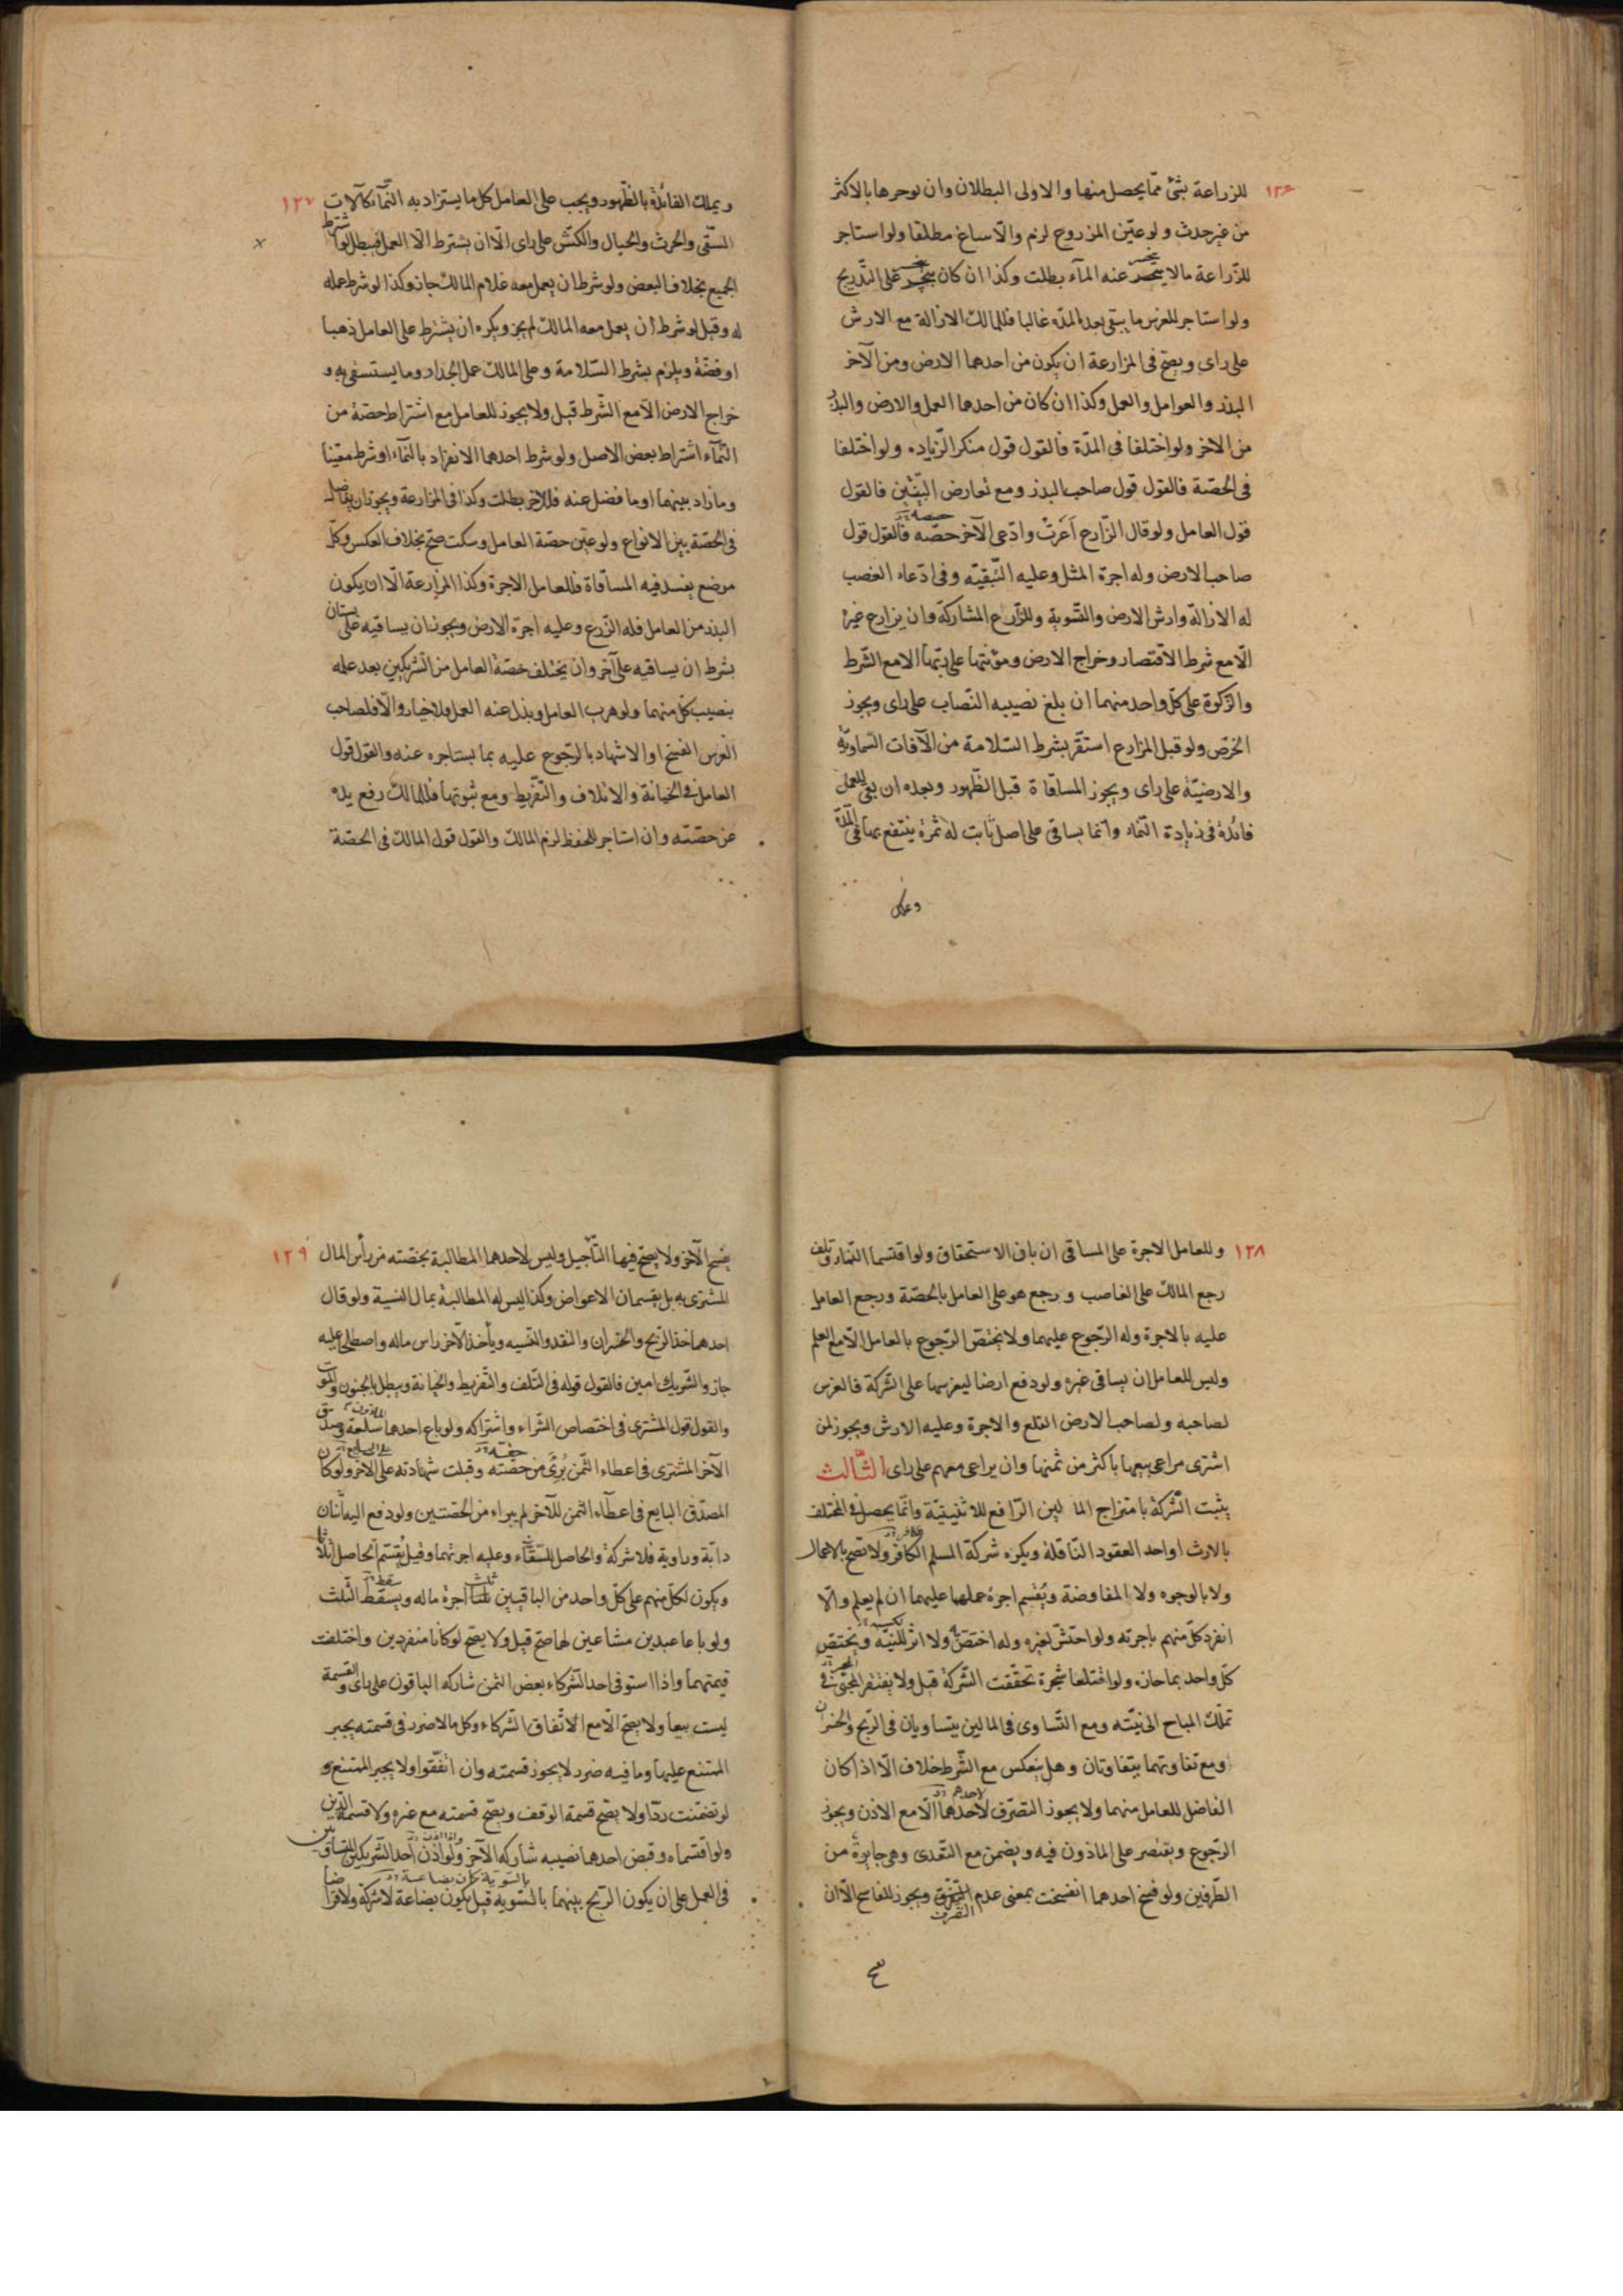 ١٢٦
للزراعة بشئ ممّا يحصل منها والاولى البطلان وان يوجرها بالاكثر
من غير حدث ولو عيّن المزروع لزم والّا ساغ مطلقا ولو استاجر
للزّراعة مالا ينحسر عنه المآء بطلت وكذا ان كان ينحسر على التّدريج
ولو استاجر للغرس ما يبقى بعد المدّه غالبا فللمالك الازالة مع الارش
على راى ويصح فى المزارعة ان يكون من احدهما الارض ومن الآخر
البذر والعوامل والعمل وكذا ان كان من احدهما العمل والارض والبذر
من الاخر ولو اختلفا فى المدّة فالقول قول منكر الزّياده ولو اختلفا
فى الحصّة فالقول قول صاحب البذر ومع تعارض البيّنتين فالقول
قول العامل ولو قال الزّارع اَعَرتَ وادّعى الآخر حصّه فالقول قول
صاحب الارض وله اجرة المثل وعليه التّبقيّه وفى ادّعاء الغصب
له الازالة وارش الارض والتّسوية وللزّارع المشاركة وان يزارع غيره
الّا مع شرط الاقتصار وخراج الارض ومؤنتها على ربّها الا مع الشّرط
والزّكوة على كلّ واحد منهما ان بلغ نصيبه النّصاب على راى ويجوز
الخرص ولو قبل المزارع استقرّ بشرط السّلامة من الآفات السّماويّة
والارضيّة على راى ويجوز المساقاة قبل الظّهور وبعده ان بقى للعمل
فائدة فى زيادة النّماء وانّما يساقى على اصل ثابت له ثمرة ينتفع بها فى المدّة
وعلى
١٢٧
ويملك الفائدة بالظّهور ويجب على العامل كل ما يستزاد به النّمآء كآلات
السّقى والحرث والحبال والكشّ على راى الّا ان يشترط الّا العمل فيبطل لو شرط
الجميع بخلاف البعض ولو شرط ان يعمل معه غلام المالك جاز وكذا لو شرط عمله
له وقيل لو شرط ان يعمل معه المالك لم يجز ويكره ان يشترط على العامل ذهبا
او فضّة ويلزم بشرط السّلامة وعلى المالك عمل الجدار وما يستسقى به و
خراج الارض الّا مع الشّرط قيل ولا يجوز للعامل مع اشتراط حصّة من
النّماء اشتراط بعض الاصل ولو شرط احدهما الانفراد بالنّمآء او شرط معيّنا
وما زاد بينهما او ما فضل عنه فللآخر بطلت وكذا فى المزارعة ويجوز ان يفاضل
فى الحصّة بين الانواع ولو عيّن حصّة العامل وسكت صحّ بخلاف العكس وكلّ
موضع يفسد فيه المساقاة فللعامل الاجرة وكذا المزارعة الّا ان يكون
البذر من العامل فله الزّرع وعليه اجرة الارض ويجوز ان يساقيه على بستان
بشرط ان يساقيه على آخر وان يختلف حصّة العامل من الشّريكين بعد علمه
بنصيب كلّ منهما ولو هرب العامل وبذل عنه العمل فلا خيار والّا فلصاحب
الغرس الفسخ او الاشهاد بالرّجوع عليه بما يستاجره عنه والقول قول
العامل فى الخيانة والاتلاف والتّفريط ومع ثبوتها فللمالك رفع يده
عن حصّته وان استاجر للحفظ لزم المالك والقول قول المالك فى الحصّة
١٢٨
وللعامل الاجرة على المساقى ان بان الاستحقاق ولو اقتسما الثّمار وتلف
رجع المالك على الغاصب ورجع هو على العامل بالحصّة ورجع العامل
عليه بالاجرة وله الرّجوع عليهما ولا يختصّ الرّجوع بالعامل الّا مع العلم
وليس للعامل ان يساقى غيره ولو دفع ارضا ليغرسها على الشركة فالغرس
لصاحبه ولصاحب الارض القلع والاجرة وعليه الارش ويجوز لمن
اشترى مراعى بيعها باكثر من ثمنها وان يراعى معهم على راى الثّالث
يثبت الشّركة بامتزاج المالين الرّافع للاثنينيّة وانّما يحصل فى المختلف
بالارث او احد العقود النّاقلة ويكره شركة المسلم الكافر ولا تصح بالاعمال
ولا بالوجوه ولا المفاوضة ويقسم اجرة عملهما عليهما ان لم يعلم والّا
انفرد كلّ منهم باجرته ولو احتشّ لغيره وله اختصّ ولا اثر للنّيّة ويختصّ
كلّ واحد بما حازه ولو اقتلعا شجرة تحقّقت الشّركة قيل ولا يفتقر المجتنى فى
تملّك المباح الى نيّته ومع التّساوى فى المالين يتساويان فى الرّبح والخسران
ومع تفاوتهما يتفاوتان وهل ينعكس مع الشّرط خلاف الّا اذا كان
الفاضل للعامل منهما ولا يجوز التصرّف لاحدهما الّا مع الاذن ويجوز
الرّجوع ويقتصر على الماذون فيه ويضمن مع التّعدى وهى جايزة من
الطّرفين ولو فسخ احدهما انفسخت بمعنى عدم التّصرّف ويجوز للفاسخ الّا ان
١٢٩
يفسخ الآخر ولا يصحّ فيها التّأجيل وليس لاحدهما المطالبة بحصّته من رأس المال
المشترى به بل يقسمان الاعواض وكذا ليس له المطالبة بمال النسية ولو قال
احدهما خذ الرّبح والخسران والنقد والنّسيه ويأخذ الآخر راس ماله واصطلحا عليه
جاز والشّريك امين فالقول قوله فى التّلف والتّفريط والخيانة ويبطل بالجنون والموت
والقول قول المشترى فى اختصاص الشّراء واشتراكه ولو باع احدهما سلعة وصدّق
الآخر المشترى فى اعطاء الثّمن بُرِئَ من حصّته وقبلت شهادته على الآخر ولو كان
المصدّق البايع فى اعطآء الثمن للآخر لم يبراء من الحصّتين ولو دفع اليه اثنان
دابّة وراوية فلا شركة والحاصل للسّقّاء وعليه اجرتهما وقيل يُقسّم الحاصل اثلاثا
ويكون لكلّ منهم على كلّ واحد من الباقيين ثلث اجرة ماله ويسقط الثّلث
ولو باعا عبدين مشاعين لهما صحّ قيل ولا يصح لو كانا منفردين واختلفت
قيمتهما واذا استوفى احد الشّركاء بعض الثمن شاركه الباقون على راى والقسمة
ليست بيعا ولا يصحّ الّا مع الاتّفاق الشّركاء وكل ما لا ضرر فى قسمته يجبر
الممتنع عليها وما فيه ضرر لا يجوز قسمته وان اتّفقوا ولا يجبر الممتنع و
لو تضمّنت ردّا ولا يصحّ قسمة الوقف ويصحّ قسمته مع غيره ولا قسمة الدّين
ولو اقتسماه وقبض احدهما نصيبه شاركه الآخر ولو اذن احد الشّريكين المتساويين
فى العمل على ان يكون الرّبح بينهما بالسّويه قيل يكون بضاعة لا شركة ولا قراضا